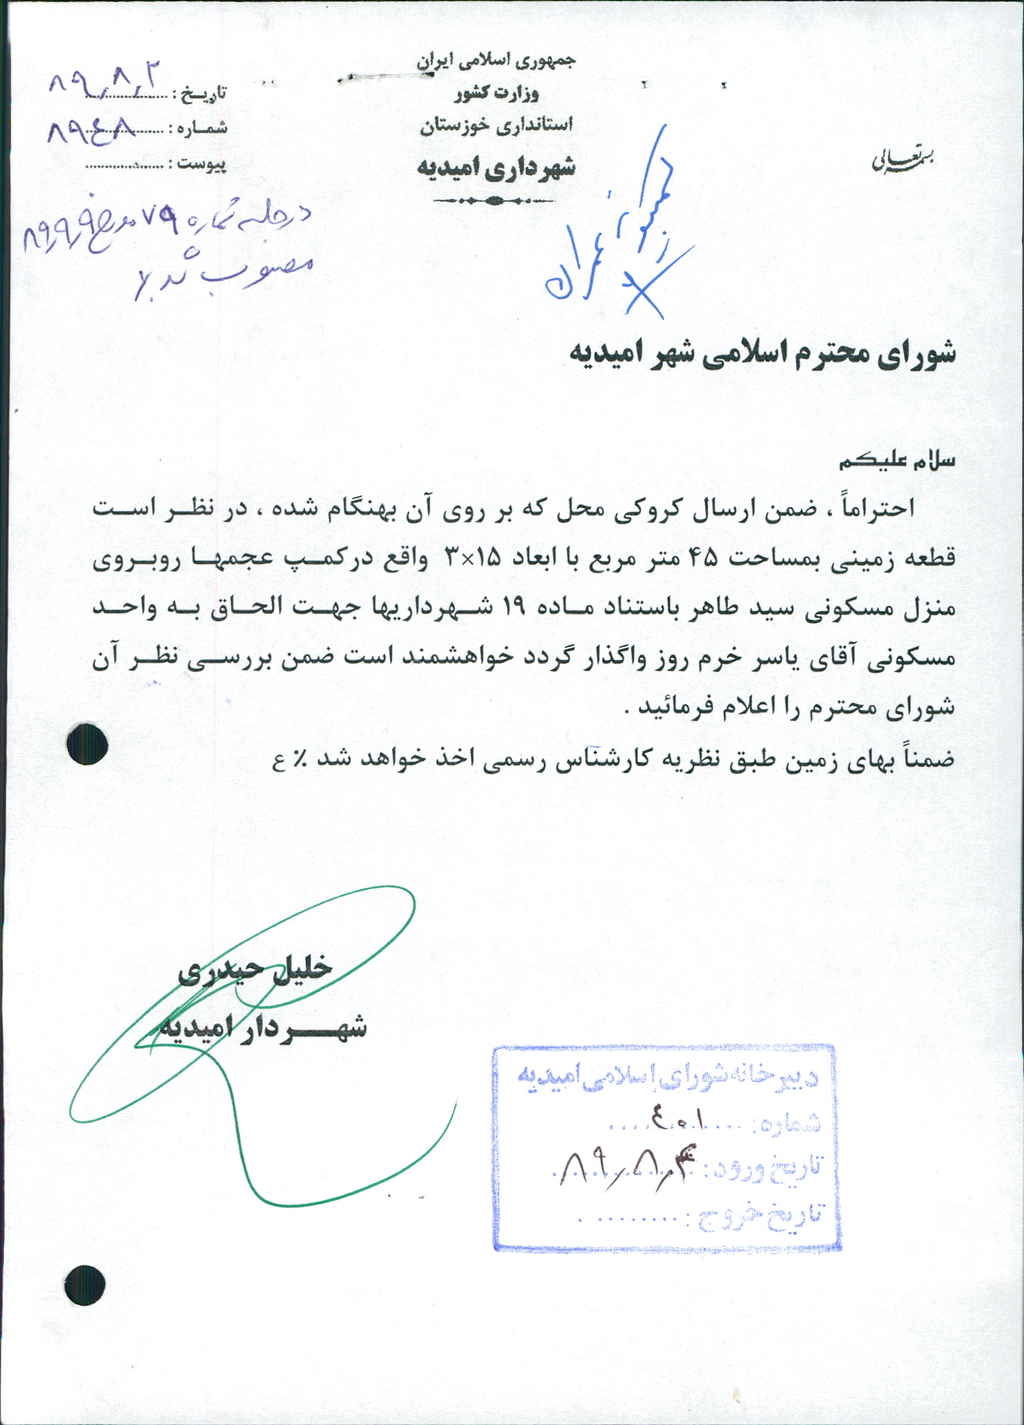 بسمه تعالی
جمهوری اسلامی ایران
وزارت کشور
استانداری خوزستان
شهرداری امیدیه
تاریخ : ۸۹,۸,۳
شماره : ۸۹۴۸
پیوست :
در جلسه شماره ۷۹ مورخ ۸۹,۹,۹
مصوب شد
کمیسیون عمران
شورای محترم اسلامی شهر امیدیه
سلام علیکم
احتراماً ، ضمن ارسال کروکی محل که بر روی آن بهنگام شده ، در نظر است
قطعه زمینی بمساحت ۴۵ متر مربع با ابعاد ۱۵×۳ واقع درکمپ عجمها روبروی
منزل مسکونی سید طاهر باستناد ماده ۱۹ شهرداریها جهت الحاق به واحد
مسکونی آقای یاسر خرم روز واگذار گردد خواهشمند است ضمن بررسی نظر آن
شورای محترم را اعلام فرمائید .
ضمناً بهای زمین طبق نظریه کارشناس رسمی اخذ خواهد شد ٪ ع
خلیل حیدری
شهردار امیدیه
دبیرخانه شورای اسلامی امیدیه
شماره: ۴۰۱
تاریخ ورود: ۸۹,۸,۴
تاریخ خروج :